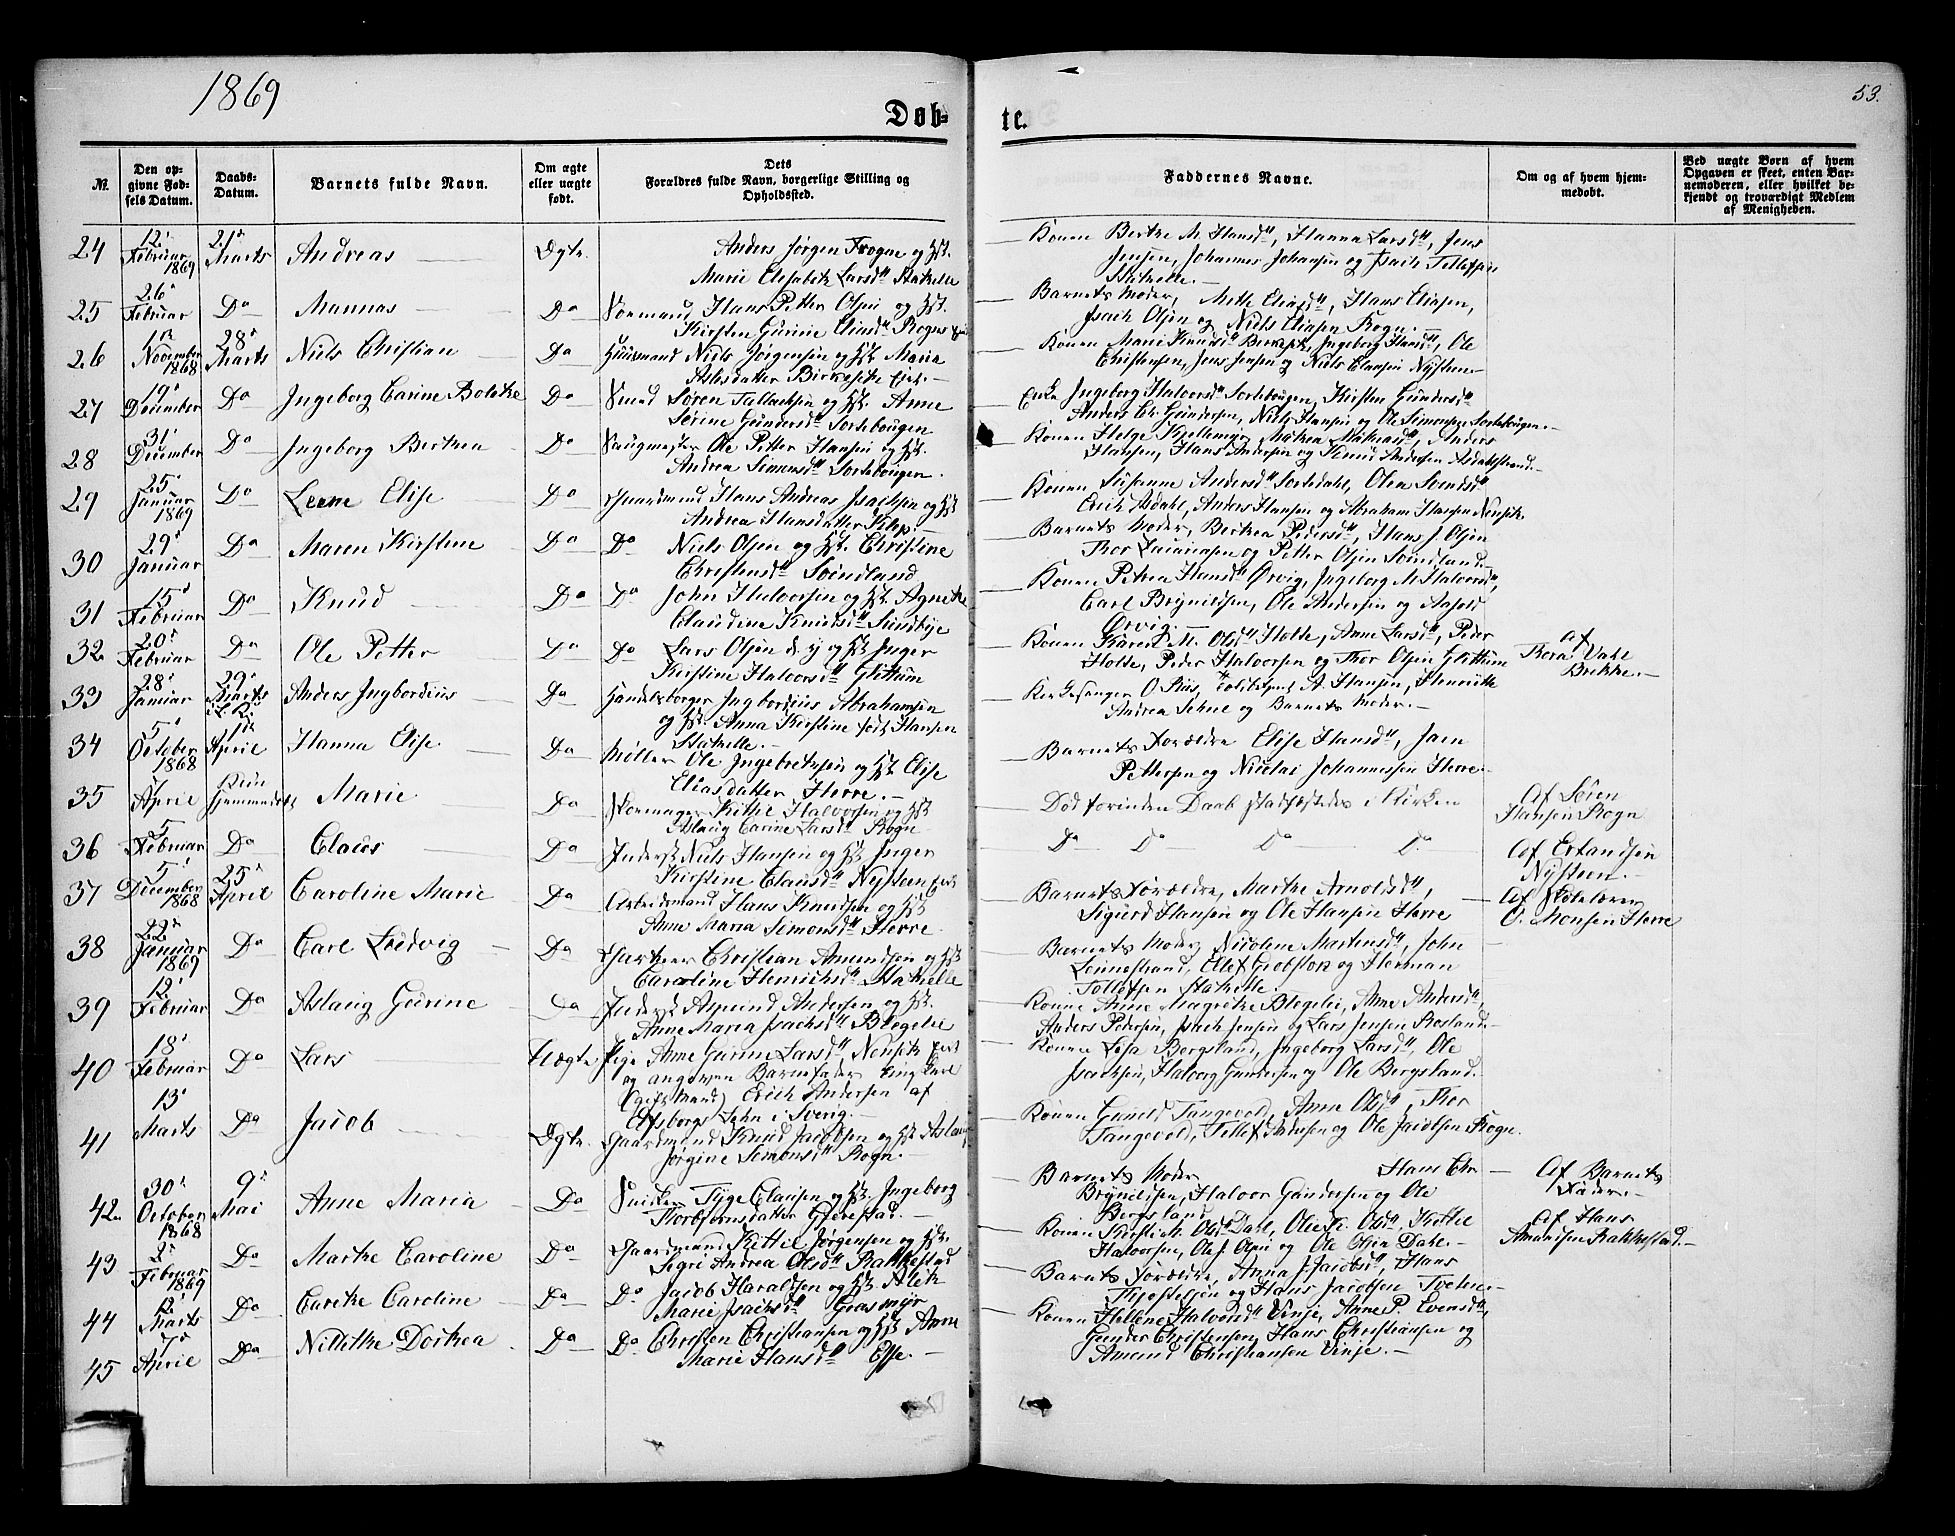 1869
53.
Døb-
te.
№.
Den op-
givne Fød-
sels Datum.
Daabs-
Datum.
Barnets fulde Navn.
Om ægte
eller uægte
født.
Dets
Forældres fulde Navn, borgerlige Stilling og
Opholdssted.
Faddernes Navne.
Om og af hvem hjem-
medøbt.
Ved uægte Børn af hvem
Opgaven er skeet, enten Bar-
nemoderen, eller hvilket be-
kjendt og troværdigt Medlem
af Menigheden.
24 12' Februar 1869 21' Marts Andreas Ægte. Anders Jørgen Frogne og Hst.
Marie Elisabeth Larsd. Stathelle
Konen Berthe M. Hansd., Hanna Larsd., Jens
Jensen, Johannes Johansen og Isach Tellefsen
Stathelle.
25 26' Februar Do Mannas Do Hans Petter Olsen og Hst.
Kirsten Gurine Eliasd. Rogns
Barnets Moder, Mette Eliasd., Hans Eliasen,
Isach Olsen og Niels Eliasen Rogn.
26 November 1868 28' Marts Niels Christian Do Huusmand Niels Jørgensen og Hst. Maria
Aslesdatter
Konen Marie Knudsd. Ingeborg Hansd., Ole
Christensen, Jens Jensen og Niels Clausen Nysteen
27 19' December Do Ingeborg Carine Bolethe Do Smed Søren Tallachsen og Hst. Anne
Sørine Gundersd. Sortebougen
Enke Ingeborg Halvorsd. Sortebougen, Kirsten Gundersd.
Anders Chr. Gundersen, Niels Hansen og Ole Simonsen Sortebougen.
28 31' December Do Ingeborg Berthea Do Saugmester Ole Petter Hansen og Hst.
Andrea Simonsd. Sortebougen.
Konen Helge Anders
Hansen, Hans Andersen og Knud Andersen Asdalstrand.
29 25' Januar 1869 Do Leene Elise Do Gaardmand Hans Andreas Isachsen og Hst
Andrea Hansdatter Klep.
Konen Susanne Andersd. Sortedahl, Olea Svendsd.
Erich Asdahl, Anders Hansen og Abraham Hansen Nensith.
30 29' Januar Do Maren Kirstine Do Do Niels Olsen og Hst. Christine
Christensd. Soindland
Barnets Moder, Berthea Pedersd., Hans J. Olsen
Thor og Petter Olsen Soindland.
31 15' Februar Do Knud Do Do John Halvorsen og Hst. Agnethe
Claudine Knudsd. Sundbye
Konen Petrea Hansd. Ørvig, Ingeborg M. Halvorsd.,
Carl Brynildsen, Ole Andersen og
Ørvig.
32 20' Februar Do Ole Petter Do Do Lars Olsen d. y. og Hst Inger
Kirstine Halvorsd. Glittum
Konen Karen M. Olsd. Holte, Anne Larsd., Peder
Holte, Peder Halvorsen og Thor Olsen Glittum
af
Thora Dahl
Brekke.
33 28' Januar 29' Marts Anders Ingbordius Do Handelsborger Ingbordius Abrahamsen
og Hst. Anna Kirstine født Hansen
Stathelle.
Kirkesanger O. Riis, A. Hansen, Henriette
Andrea og Barnets Moder.
34 5' October 1868 April Hanna Elise Do Møller Ole Ingebretsen og Hst Elise
Eliasdatter Herre.
Barnets Forældre Elise Hansd.,
Pettersen og Nicolai Johannesen Herre
35 7' April Kun hjemmedøbt Marie Do Skomager Kittil Halvorsen og Hst
Aslaug Carine Larsd. Rogn
Død forinden Daab stadfæstedes i Kirken
Af Søren
Hansen Rogn
36 5' Februar Do Claus Do Inderst Niels Hansen og Hst Inger
Kirstine Clausd. Nysteen
Do Do Do Do
Af Erlandsen
Nysteen.
37 5' December 1868 25' April Caroline Marie Do Arbeidsmand Hans Knudsen og Hst
Anne Maria Simonsd. Herre
Barnets Forældre, Marthe Arnoldsd.,
Sigurd Hansen og Ole Hansen Herre
Af Skolelærer
O. Monsen Herre
38 22' Januar 1869 Do Carl Ludvig Do Christian Amundsen og Hst
Caroline Henrichsd. Stathelle
Barnets Moder, Nicoline Martinsd., John
Lønnestrand, Grobstok og Herman
Tollefsen Stathelle.
39 12' Februar Do Aslaug Gurine Do Inderst Asmund Andersen og Hst.
Anne Maria Isachsd. Blegelie
Konen Anne Magrethe Blegelei, Anne Andersd.,
Anders Pedersen, Isach Jensen og Lars Jensen Rosland.
40 18' Februar Do Lars Uægte Pige Anne Gurine Larsd., Nensith
og angiven Barnefader Ungkarl
(gift Mand) Erich Andersen af
Elfsborgs Lehn i Sverig.
Konen Lisa Bergsland, Ingeborg Larsd., Ole
Isachsen, Halvorg Gundersen og Ole Bergsland.
41 13' Marts Do Jacob Ægte. Gaardmand Knud Jacobsen og Hst Aslaug
Jørgine Simonsd. Rogn.
Konen Gunild Tangevold, Anne Olsd., Thor
Tangevold, Tellef Andersen og Ole Jacobsen Rogn.
42 30' October 1868 9' Mai Anne Maria Do Snicker Tyge Clausen og Hst. Ingeborg
Thorbjørnsdatter Gjerestad.
Barnets Moder Hans Chr.
Brynildsen, Halvor Gundersen og Ole
Bergsland
Af Barnets
Fader.
43 2' Februar 1869 Do Marthe Caroline Do Gaardmand Kittil Jørgensen og Hst.
Sigri Andrea Olsd. Rakkestad
Konen Kirsti M. Olsd. Dahl, Olsd., Kittil
Halvorsen, Ole J. Olsen og Ole Olsen Dahl.
Af Hans
Amundsen Rakkestad.
44 12' Marts Do Carethe Caroline Do Do Jacob Haraldsen og Hst Aleth
Marie Isachsd. Grasmyr
Barnets Forældre, Anna J. Jacobsd., Hans
og Hans Jacobsen Tvetene.
45 7' April Do Nillithe Dorthea Do Do Christen Christiansen og Hst. Anne
Marie Hansd. Esse.
Konen Hellene Halvorsd. Vinje, Anne P. Evensd.,
Gunder Christensen, Hans Christiansen og
Amund Christiansen Vinje.